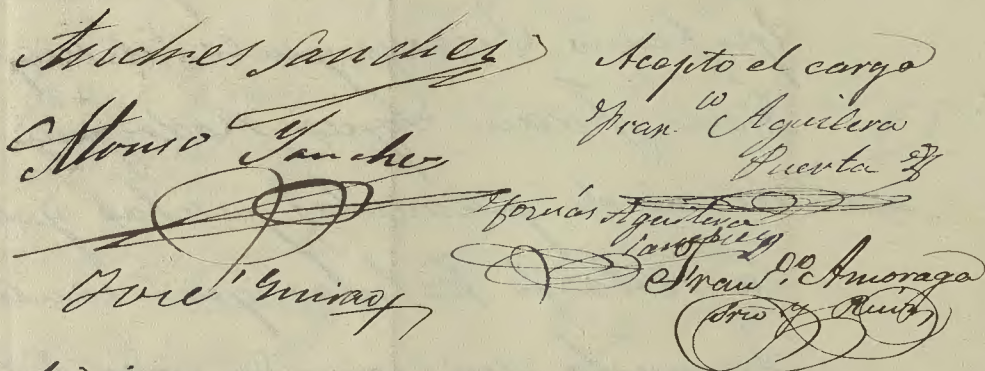 Andres Sanchez
Alonso Sanchez
José Guirao
Acepto el cargo
Fran.co Aguilera
Puerta
Tomás Aguilera
Fran.co Amoraga
y Ruiz